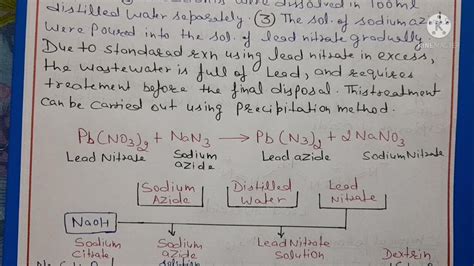 were dissolved in 100ml
distilled water separately. ③ The sol. of sodium azi
were Poured into the sol. of lead nitrate gradually
Due to standared rxn using lead nitrate in excess,
the wastewater is full of Lead, and requires
treatement before the final disposal. This treatment
can be carried out using Precipitation method.
Pb(NO3)2 + NaN3 → Pb(N3)2 + 2NaNO3
Lead Nitrate Sodium azide Lead azide Sodium Nitrate
Sodium Azide Distilled Water Lead Nitrate
NaOH
Sodium Citrate Sodium azide solution Lead Nitrate Solution Dextrin